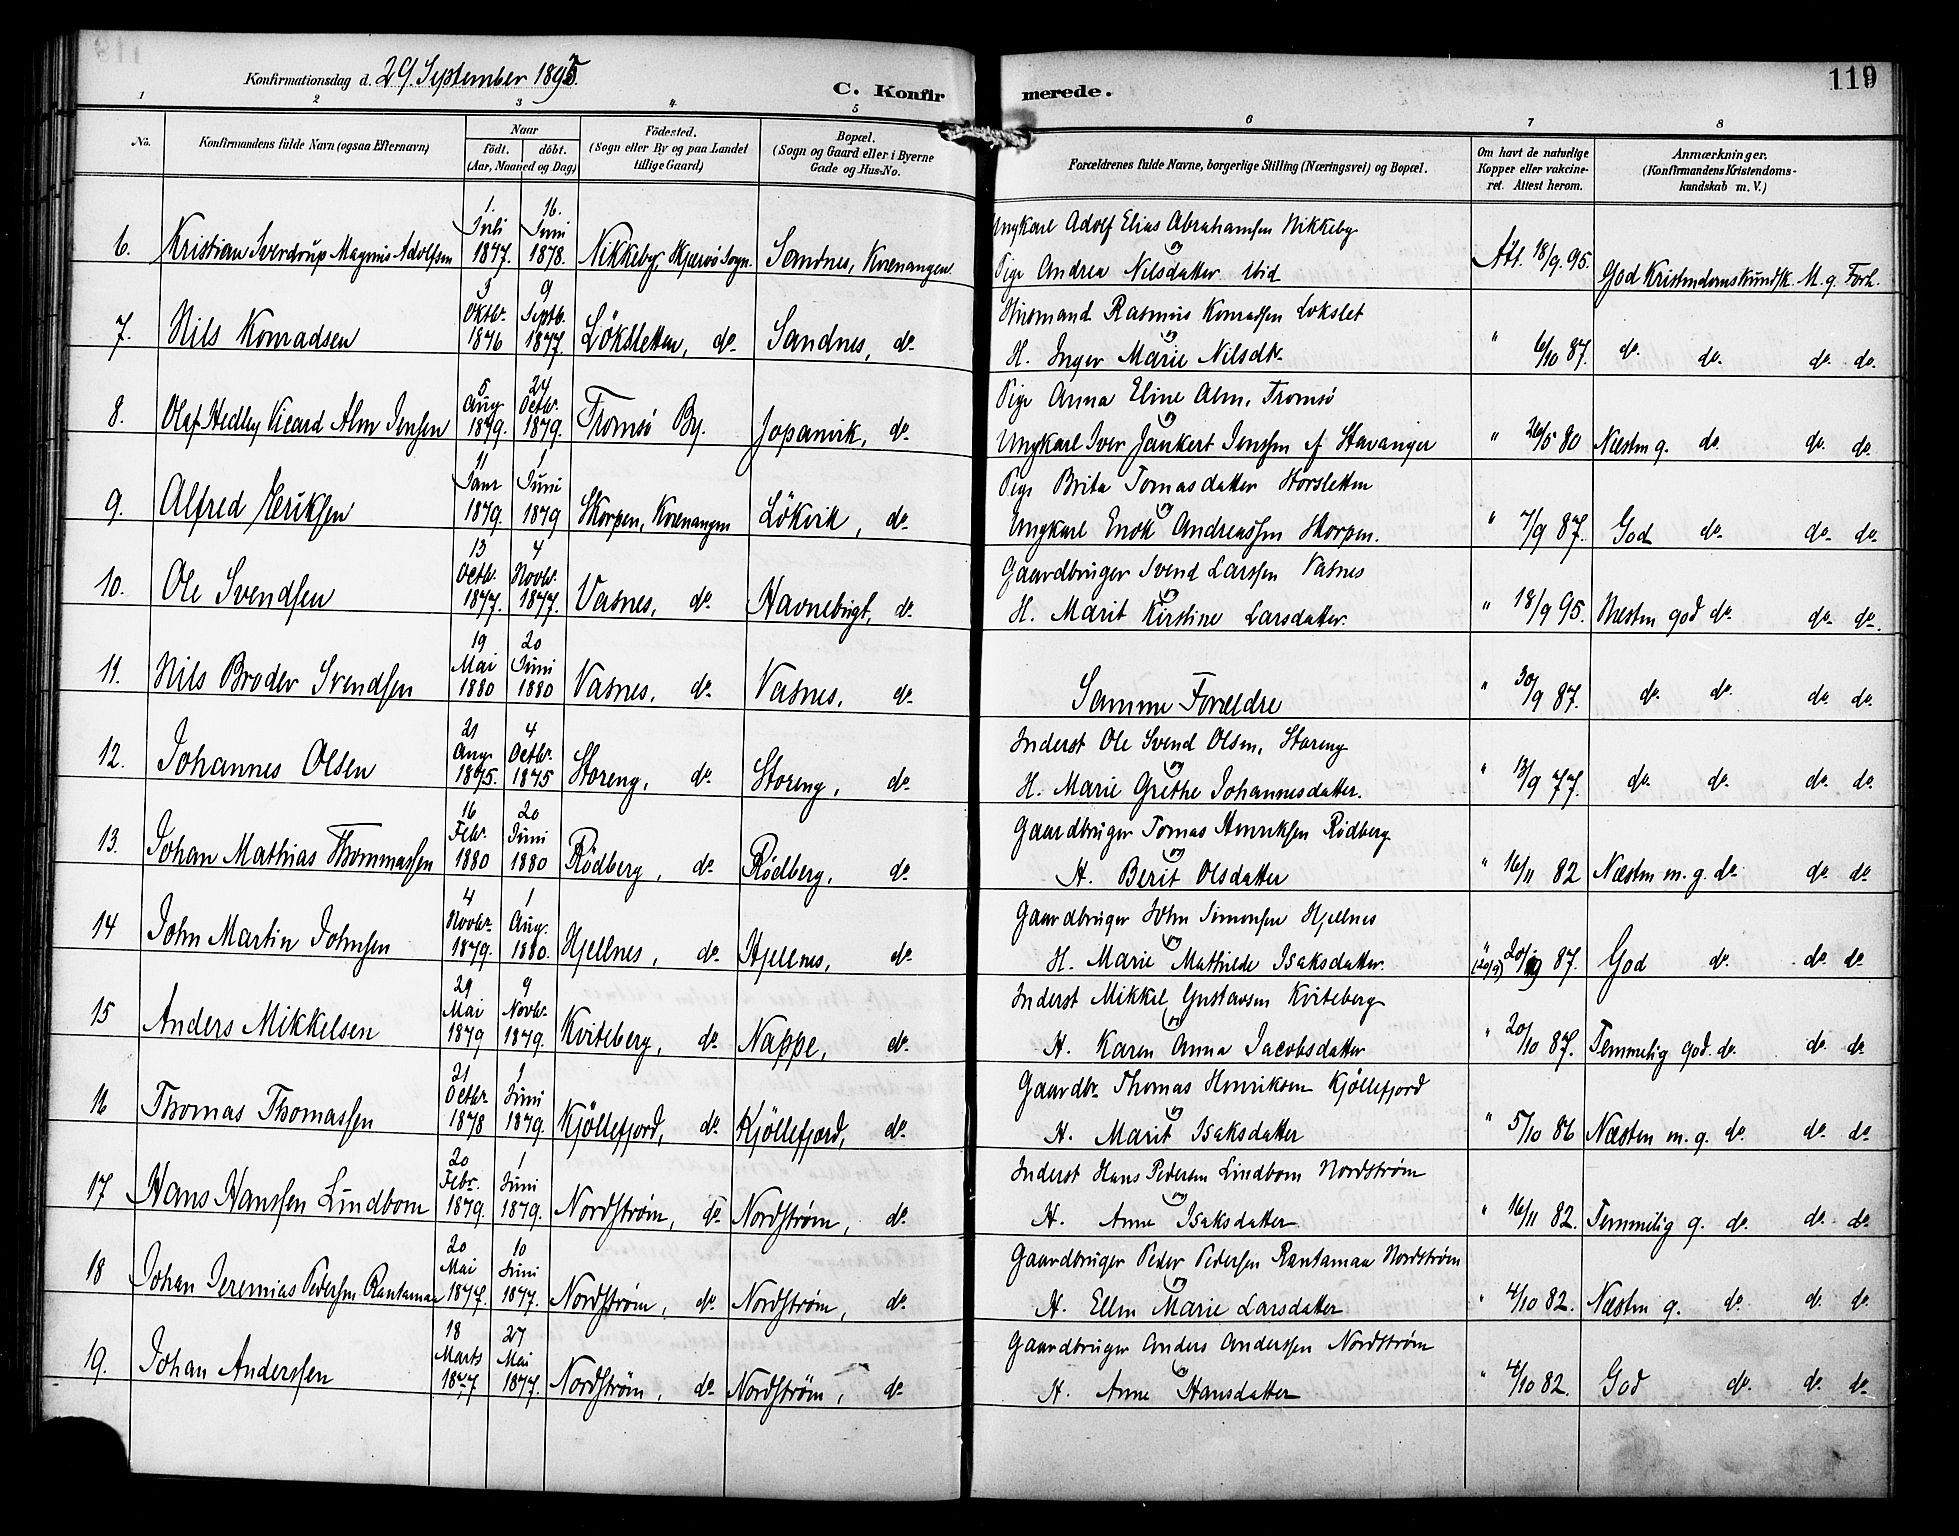 Konfirmationsdag d. 29. September 1895.
C. Konfir merede. 119
1 2 3 4 5 6 7 8
No.
Konfirmandens fulde Navn (ogsaa Efternavn)
Naar
Födt. döbt.
(Aar, Maaned og Dag)
Födested.
(Sogn eller By og paa Landet
tillige Gaard)
Bopæl.
(Sogn og Gaard eller i Byerne
Gade og Hus-No.
Forældrenes fulde Navne, borgerlige Stilling (Næringsvei) og Bopæl.
Om havt de naturlige
Kopper eller vakcine-
ret. Attest herom.
Anmærkninger.
(Konfirmandens Kristendoms-
kundskab m. V.)
6. Kristian Sverdrup Magnus Adolfsen 1. Juli 1877. 16. Juni 1878. Nikkeby, Skjærvö Sogn. Sandnes, Kvænangen Ungkarl Adolf Elias Abrahamsen Nikkeby
og
Pige Andrea Nilsdatter ibid Att. 18/9. 95. God Kristendomskundsk. M. g. Forh.
7. Nils Konradsen 3 Oktbr. 1876 9 Septb. 1877. Löksletten, do. Sandnes, do. Husmand Rasmus Konradsen Lökslet
og
H. Inger Marie Nilsdtr. " 6/10 87. do. do. do. do.
8. Olaf Hedley Vicard Alm Jensen 5 Aug. 1879. 24 Octbr. 1879. Tromsö By. Jopanvik, do. Pige Anna Eline Alm, Tromsö
og
Ungkarl Iver Jankert Jenssen af Stavanger " 26/5 80 Næsten g. do. do. do.
9. Alfred Eriksen 11 Janr 1879. 1 Juni 1879 Skorpen, Kvænangen Lökvik, do. Pige Brita Tomasdatter Storsletten
og
Ungkarl Enok Andreassen Skorpen. " 7/9 87. God do. do. do.
10. Ole Svendsen 13 Octbr. 1877. 4 Novbr. 1877. Vasnes, do. Havnebugt, do. Gaardbruger Svend Larssen Vasnes
og
H. Marit Kirstine Larsdatter. " 18/9 95. Næsten god do. do. do.
11. Nils Broder Svendsen 19 Mai 1880 20 Juni 1880 Vasnes, do. Vasnes, do. Samme Forældre " 30/9 87. do. do. do. do.
12. Johannes Olsen 21 Aug. 1875. 4 Octbr. 1875 Storeng, do. Storeng, do. Inderst Ole Svend Olsen, Storeng
og
H. Marie Grethe Johannesdatter. " 13/9 77. do. do. do. do.
13. Johan Mathias Thommassen 16 Febr. 1880 20 Juni 1880 Rödberg, do. Rödberg, do. Gaardbruger Tomas Henriksen Rödberg
og
H. Berit Olsdatter " 16/11 82 Næsten m. g. do. do. do.
14 John Martin Johnsen 4 Novbr. 1879. 1 Aug. 1880. Kjellnes, do. Kjellnes, do. Gaardbruger John Simonsen Kjellnes
og
H. Marie Mathilde Isaksdatter. " (20/9) 20/9 87. God do. do. do.
15 Anders Mikkelsen 29 Mai 1879 9 Novbr. 1879. Kviteberg, do. Nappe, do. Inderst Mikkel Gustavsen Kviteberg
og
H. Karen Anna Jacobsdatter " 20/10 87. Temmelig god. do. do. do.
16 Thomas Thomassen 21 Octbr 1878 1 Juni 1879. Kjöllefjord, do. Kjöllefjord, do. Gaardbr. Thomas Henriksen Kjöllefjord
og
H. Marit Isaksdatter " 5/10 86 Næsten m. g. do. do. do.
17 Hans Hanssen Lindbom 20 Febr. 1879. 1 Juni 1879. Nordström, do. Nordström, do. Inderst Hans Pedersen Lindbom Nordström
og
H. Anne Isaksdatter " 16/11 82. Temmelig g. do. do. do.
18 Johan Jeremias Pedersen Rantamaa 20 Mai 1877. 10 Juni 1877. Nordström, do. Nordström, do. Gaardbruger Peder Pedersen Rantamaa Nordström
og
H. Ellen Marie Larsdatter " 4/10 82. Næsten g. do. do. do.
19. Johan Anderssen 18 Marts 1877 27 Mai 1877. Nordström, do. Nordström, do. Gaardbruger Anders Anderssen Nordström
og
H. Anne Hansdatter " 4/10 82. God do. do. do.